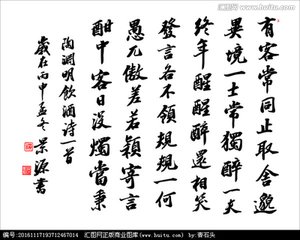 有客常同止取舍邈
異境一士常獨醉一夫
終年醒醒醉還相笑
發言各不領規規一何
愚兀傲差若穎寄言
酣中客日没燭當秉
陶淵明飲酒詩一首
歲在丙申孟冬景源書
编号:20161117193712467014 汇图网正版商业图库 www.huitu.com/by:香石头